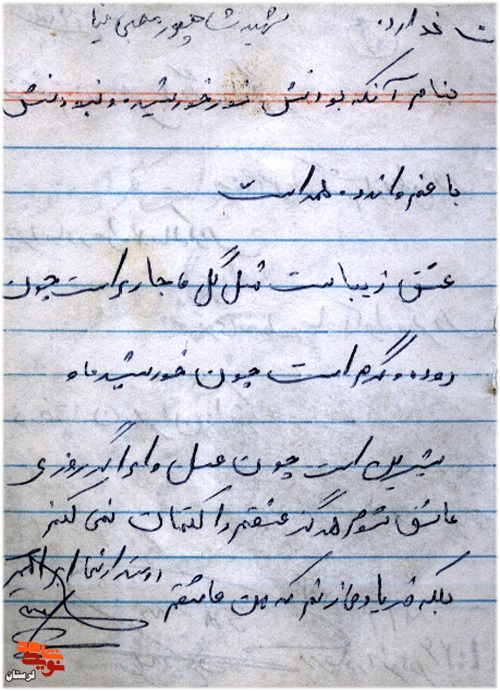 شهید شاهپور محبی نیا
ندارد
بنام آنکه بودنش نور خورشیده و نبودنش
با غم و اندوه همراست
عشق زیباست مثل گل ها جاری است چون
رود و گرم است چون خورشید ماه
شیرین است چون عسل و اما اگر روزی
عاشق شوم هرگز عشقم را کتمان نمی کنم
بلکه فریاد می زنم که من عاشقم
نوید شاهد
لرستان